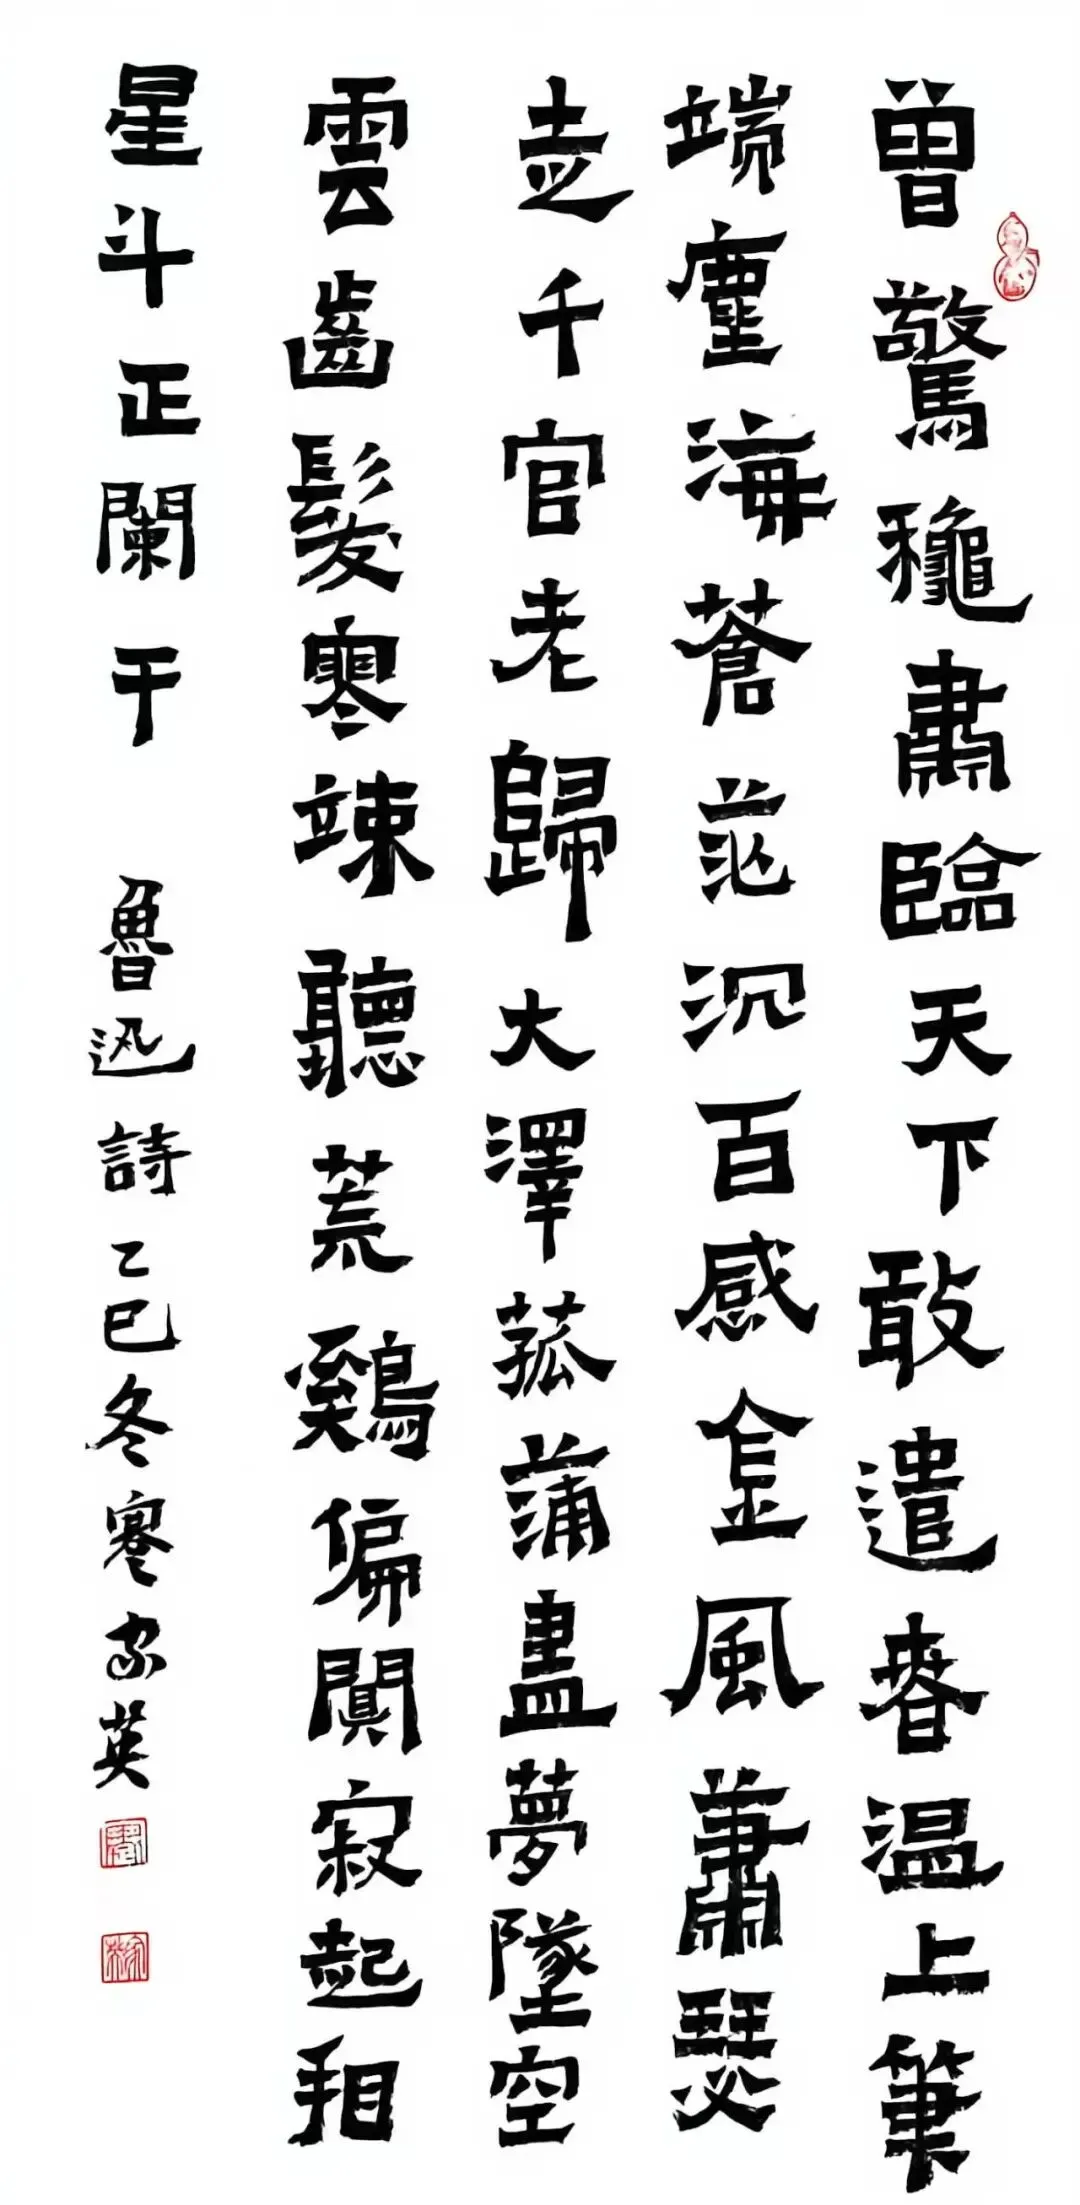 曾驚穐肅臨天下敢遣春温上筆
端塵海蒼茫沉百感金風蕭瑟
走千官老歸大澤菰蒲盡夢墜空
雲齒髮寒竦聽荒鷄偏闃寂起相
星斗正闌干
魯迅詩乙巳冬寒家英